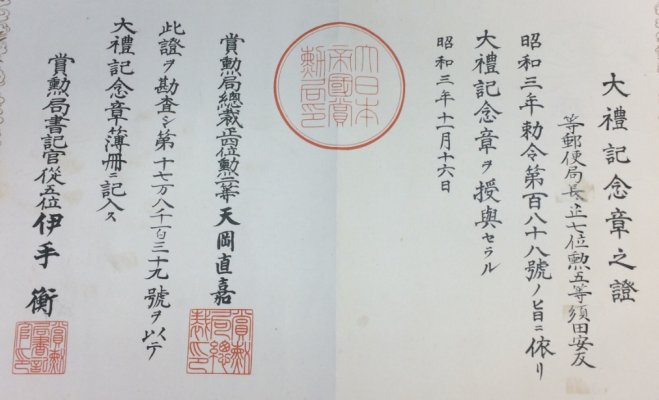 大禮記念章之證
等郵便局長正七位勲五等須田安友
昭和三年勅令第百八十八號ノ旨ニ依リ
大禮記念章ヲ授與セラル
昭和三年十一月十六日
大日本帝國賞勲局印
賞勲局總裁正四位勲一等天岡直嘉
賞勲局總裁印
此證ヲ勘査シ第十七万八千百三十九號ヲ以テ
大禮記念章簿冊ニ記入ス
賞勲局書記官從五位伊手衡
賞勲局書記官印